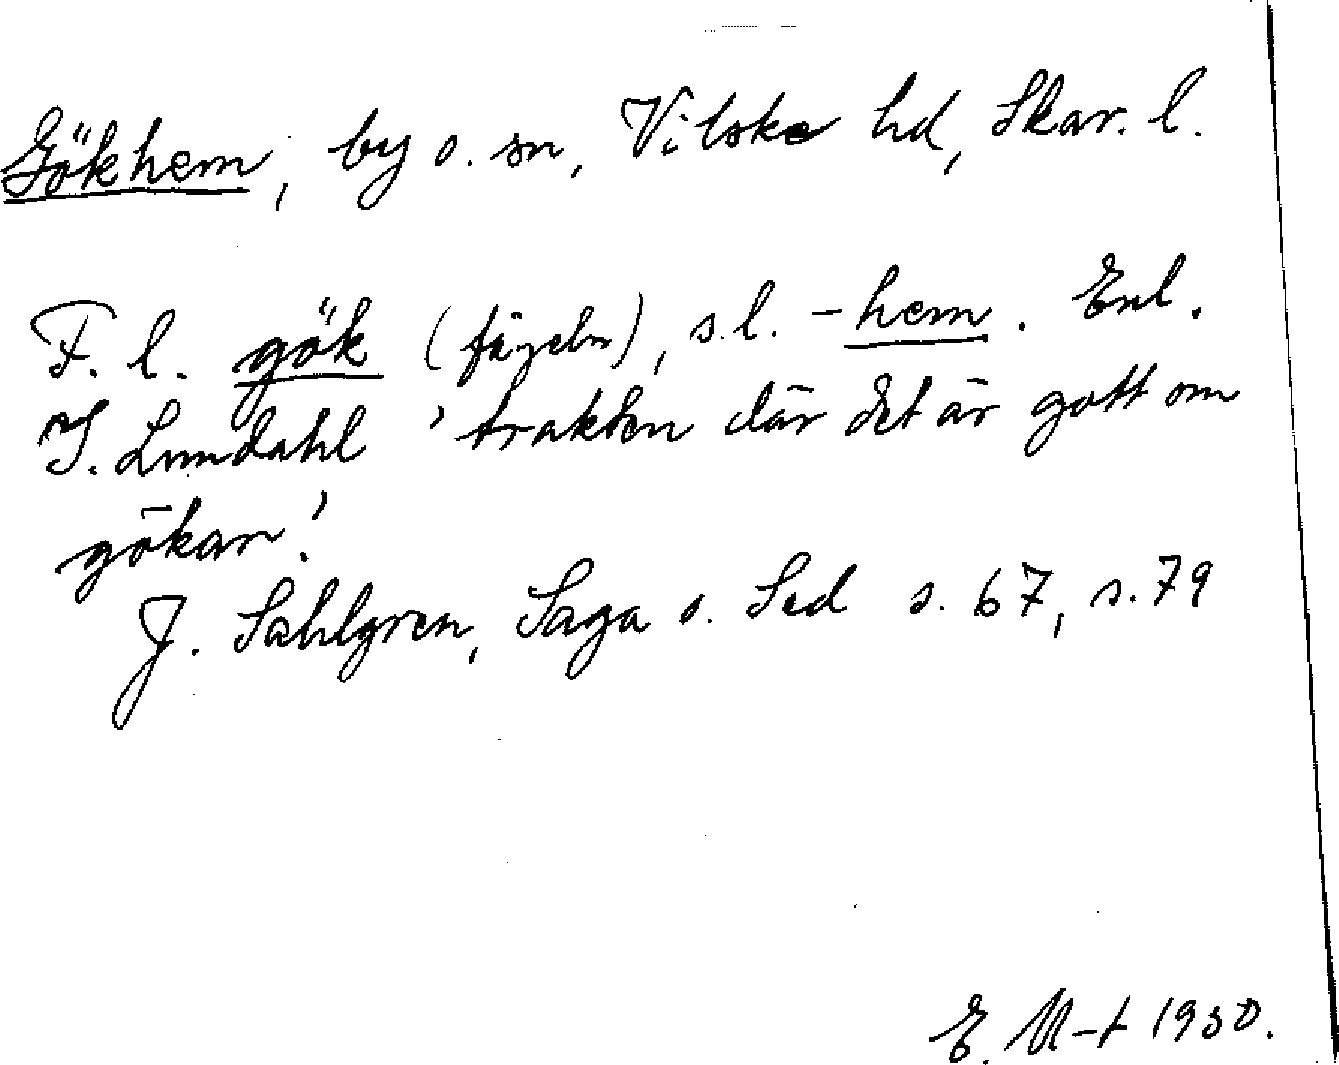 Gökhem, by o. sn, Vilske hd, Skar. l.
F. l. gök (fågeln), s.l. -hem. Enl.
I. Lundahl 'trakten där det är gott om
gökar.'
J. Sahlgren, Saga o. Sed s. 67, s. 79
E. M-t 1930.